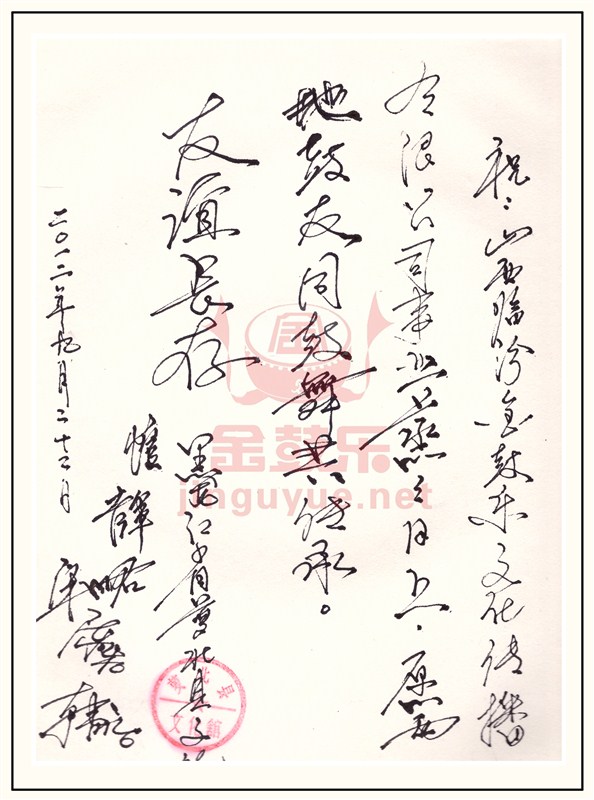 祝：山西临汾金鼓乐文化传播
有限公司事业蒸蒸日上。愿两
地鼓友同鼓舞共传承。
友谊长存
黑龙江省肇北县文
薛
二〇一二年九月二十二日
金鼓乐
jinguyue.net